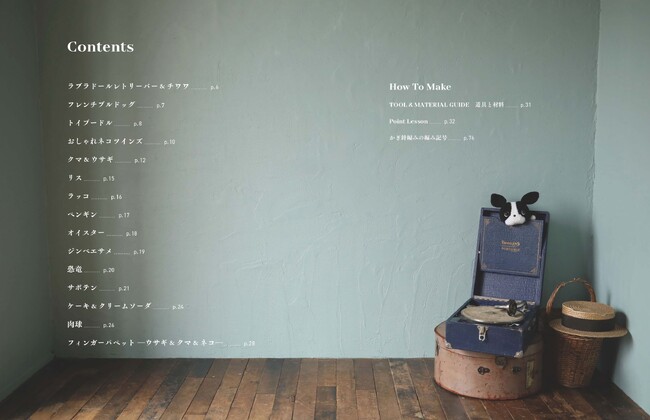 Contents
ラブラドールレトリーバー & チワワ p.6
フレンチブルドッグ p.7
トイプードル p.8
おしゃれネコツインズ p.10
クマ & ウサギ p.12
リス p.15
ラッコ p.16
ペンギン p.17
オイスター p.18
ジンベエザメ p.19
恐竜 p.20
サボテン p.21
ケーキ & クリームソーダ p.24
肉球 p.26
フィンガーパペット ―ウサギ & クマ & ネコ― p.28
How To Make
TOOL & MATERIAL GUIDE 道具と材料 p.31
Point Lesson p.32
かぎ針編みの編み記号 p.76